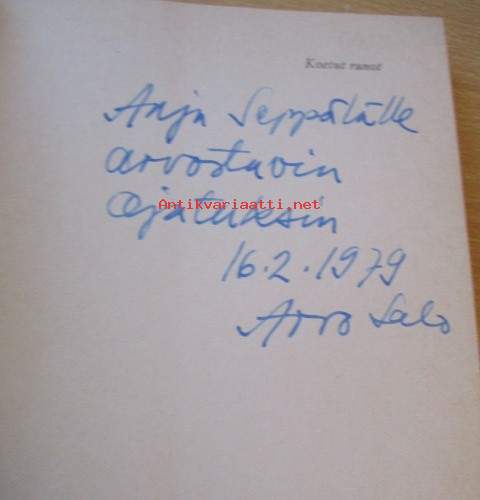 Kootut runot
Anja Seppälälle
arvostavin
Antikvariaatti.net
ajatuksin
16.2.1979
Arvo Salo